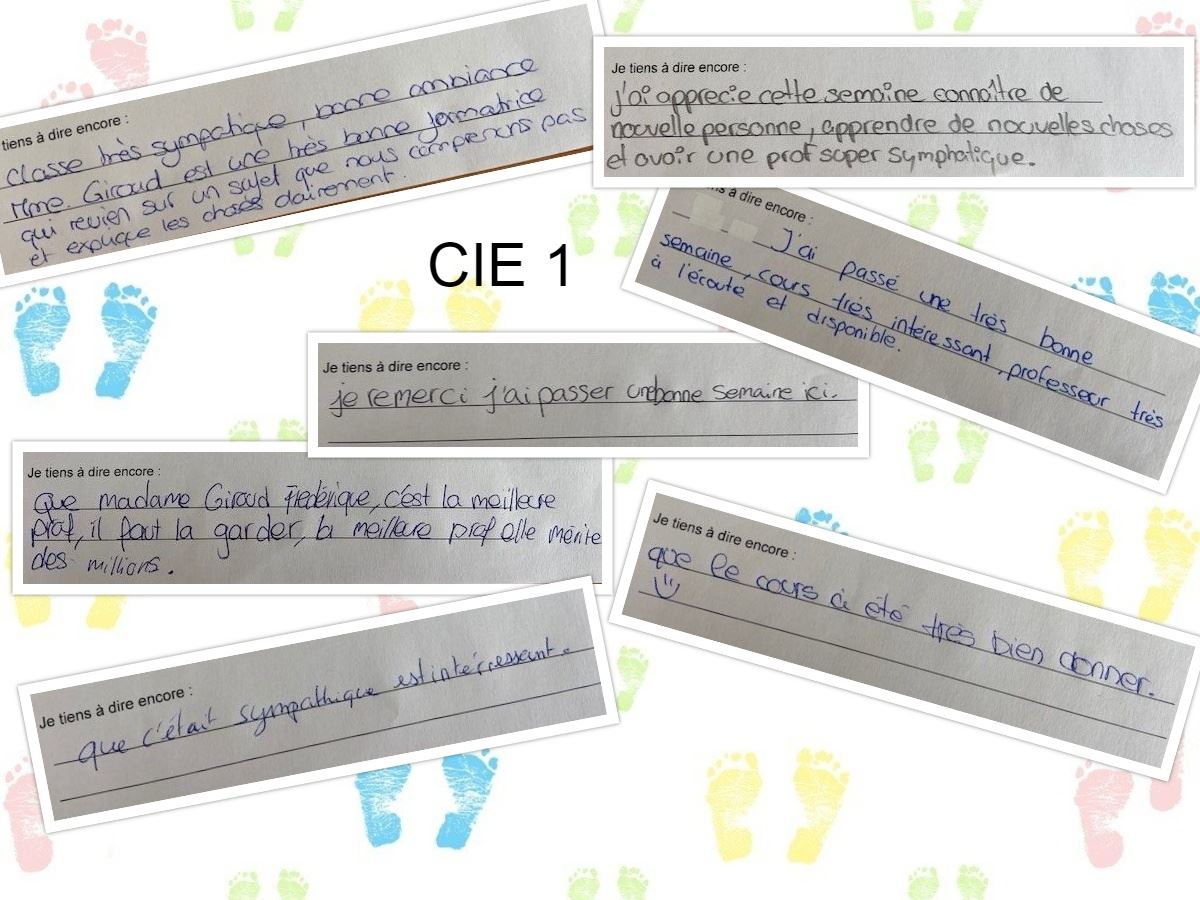 tiens à dire encore :
Classe très sympatique, bonne ambiance
Mme. Giroud est une très bonne formatrice
qui revien sur un sujet que nous comprenons pas
et explique les choses clairement.
Je tiens à dire encore :
j'ai apprecie cette semaine connaître de
nouvelle personne, apprendre de nouvelles choses
et avoir une prof super symphatique.
s à dire encore :
J'ai passé une très bonne
semaine, cours très intéressant, professeur très
à l'écoute et disponible.
CIE 1
Je tiens à dire encore :
je remerci j'ai passer une bonne semaine ici.
Je tiens à dire encore :
Que madame Giroud Frédérique, c'est la meilleure
prof, il faut la garder, la meilleure prof elle mérite
des millions.
Je tiens à dire encore :
que le cours à été très bien donner.
Je tiens à dire encore :
que c'était sympathique est intérressant.